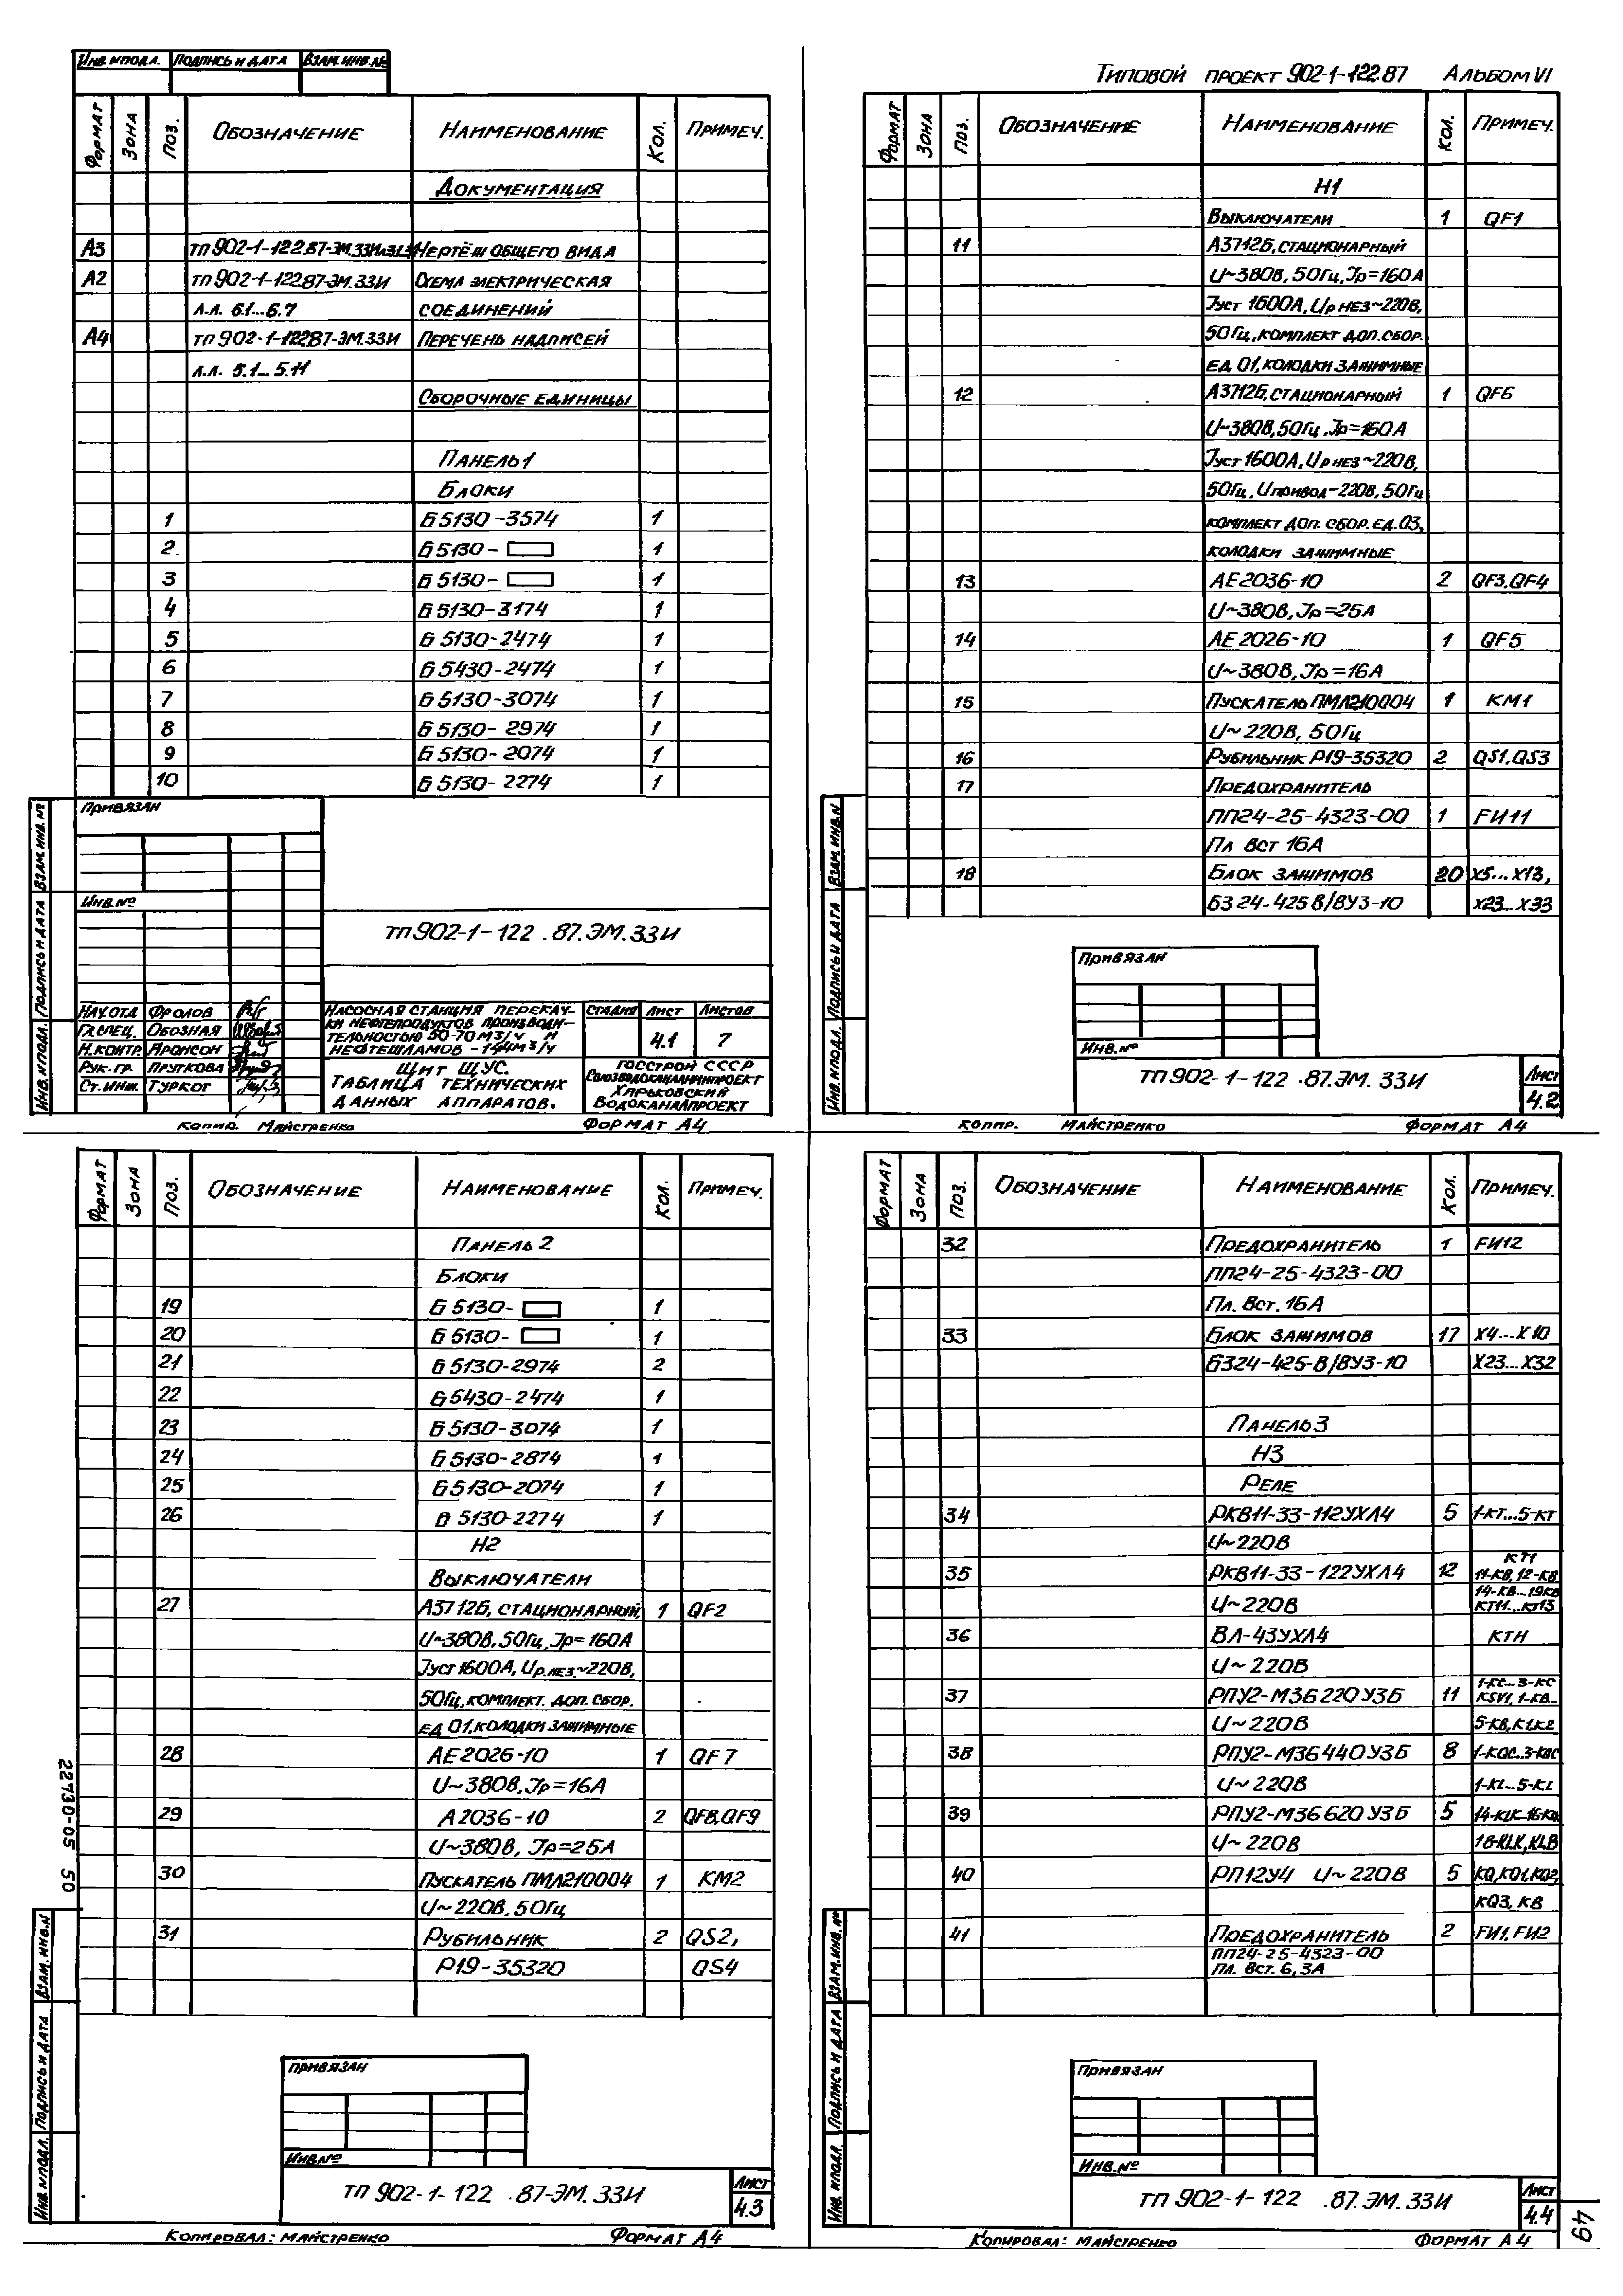 Инв.№ подл. Подпись и дата Взам.инв.№
Формат Зона Поз. Обозначение Наименование Кол. Примеч.
Документация
А3 ТП 902-1-122.87-ЭМ.ЗЗИ Чертёж общего вида
А2 ТП 902-1-122.87-ЭМ.ЗЗИ Схема электрическая
л.л. 6.1...6.7 соединений
А4 ТП 902-1-122.87-ЭМ.ЗЗИ Перечень надписей
л.л. 5.1...5.11
Сборочные единицы
Панель 1
Блоки
1 Б5130-3574 1
2 Б5130- 1
3 Б5130- 1
4 Б5130-3174 1
5 Б5130-2474 1
6 Б5430-2474 1
7 Б5130-3074 1
8 Б5130-2974 1
9 Б5130-2074 1
10 Б5130-2274 1
Привязан
Инв.№
ТП 902-1-122.87.ЭМ.ЗЗИ
Нач.отд Фролов
Гл.спец. Обозная
Н.контр. Аронсон
Рук.гр. Пруткова
Ст.инж. Туркот
Насосная станция перекач-
ки нефтепродуктов производи-
тельностью 50-70 м3/ч и
нефтешламов - 144м3/ч
Стадия Лист Листов
4.1 7
Щит ЩУС.
Таблица технических
данных аппаратов.
Госстрой СССР
Союзводоканалниипроект
Харьковский
Водоканалпроект
Инв.№подл. Подпись и дата Взам.инв.№
Копир. Майстренко Формат А4
Типовой проект 902-1-122.87 Альбом VI
Формат Зона Поз. Обозначение Наименование Кол. Примеч.
Н1
Выключатели 1 QF1
11 А3712Б, стационарный
U~380В, 50Гц, Iр=160А
Iуст 1600А, Uр нез ~220В,
50Гц, комплект доп.сбор.
ед 01, колодки зажимные
12 А3712Б, стационарный 1 QF6
U~380В, 50Гц, Iр=160А
Iуст 1600А, Uр нез ~220В,
50Гц, Uпривод~220В, 50Гц
комплект доп. сбор. ед. 03,
колодки зажимные
13 АЕ2036-10 2 QF3,QF4
U~380В, Iр=25А
14 АЕ2026-10 1 QF5
U~380В, Iр=16А
15 Пускатель ПМЛ210004 1 КМ1
U~220В, 50Гц
16 Рубильник Р19-35320 2 QS1,QS3
17 Предохранитель
ПП24-25-4323-00 1 FИ11
Пл вст 16А
18 Блок зажимов 20 Х5...Х13,
БЗ 24-425 В/ВУЗ-10 Х23...Х33
Привязан
Инв.№
ТП 902-1-122.87.ЭМ.ЗЗИ
Лист
4.2
Инв.№подл. Подпись и дата Взам.инв.№
Копир. Майстренко Формат А4
Формат Зона Поз. Обозначение Наименование Кол. Примеч.
Панель 2
Блоки
19 Б5130- 1
20 Б5130- 1
21 Б5130-2974 2
22 Б5430-2474 1
23 Б5130-3074 1
24 Б5130-2874 1
25 Б5130-2074 1
26 Б5130-2274 1
Н2
Выключатели
27 А3712Б, стационарный, 1 QF2
U~380В, 50Гц, Iр=160А
Iуст 1600А, Uр.нез.~220В,
50Гц, комплект. доп. сбор.
ед 01, колодки зажимные
28 АЕ2026-10 1 QF7
U~380В, Iр=16А
29 А2036-10 2 QF8,QF9
U~380В, Iр=25А
30 Пускатель ПМЛ210004 1 КМ2
U~220В, 50Гц
31 Рубильник 2 QS2,
Р19-35320 QS4
22730-05 50
Привязан
Инв.№
ТП 902-1-122.87-ЭМ.ЗЗИ
Лист
4.3
Инв.№подл. Подпись и дата Взам.инв.№
Копировал: Майстренко Формат А4
Формат Зона Поз. Обозначение Наименование Кол. Примеч.
32 Предохранитель 1 FИ12
ПП24-25-4323-00
Пл. вст. 16А
33 Блок зажимов 17 Х4...Х10
БЗ24-425-В/ВУЗ-10 Х23...Х32
Панель 3
Н3
Реле
34 РКВ11-33-112УХЛ4 5 1-КТ...5-КТ
U~220В
КТ1
35 РКВ11-33-122УХЛ4 12 11-КВ, 12-КВ
14-КВ...19КВ
U~220В КТ11...КТ13
36 ВЛ-43УХЛ4 КТН
U~220В
1-КС...3-КС
37 РПУ2-М36220У3Б 11 KSV1, 1-КВ...
U~220В 5-КВ, К1,К2
38 РПУ2-М36440У3Б 8 1-KQC...3-KQC
U~220В 1-KL...5-KL
39 РПУ2-М36620У3Б 5 14-KLK...16-
U~220В 18-KLK, KLB
40 РП12У4 U~220В 5 KQ, KQ1, KQ2,
KQ3, КВ
41 Предохранитель 2 FИ1, FИ2
ПП24-25-4323-00
Пл. вст. 6,3А
Привязан
Инв.№
ТП 902-1-122.87.ЭМ.ЗЗИ
Лист
4.4
49
Инв.№подл. Подпись и дата Взам.инв.№
Копировал: Майстренко Формат А4